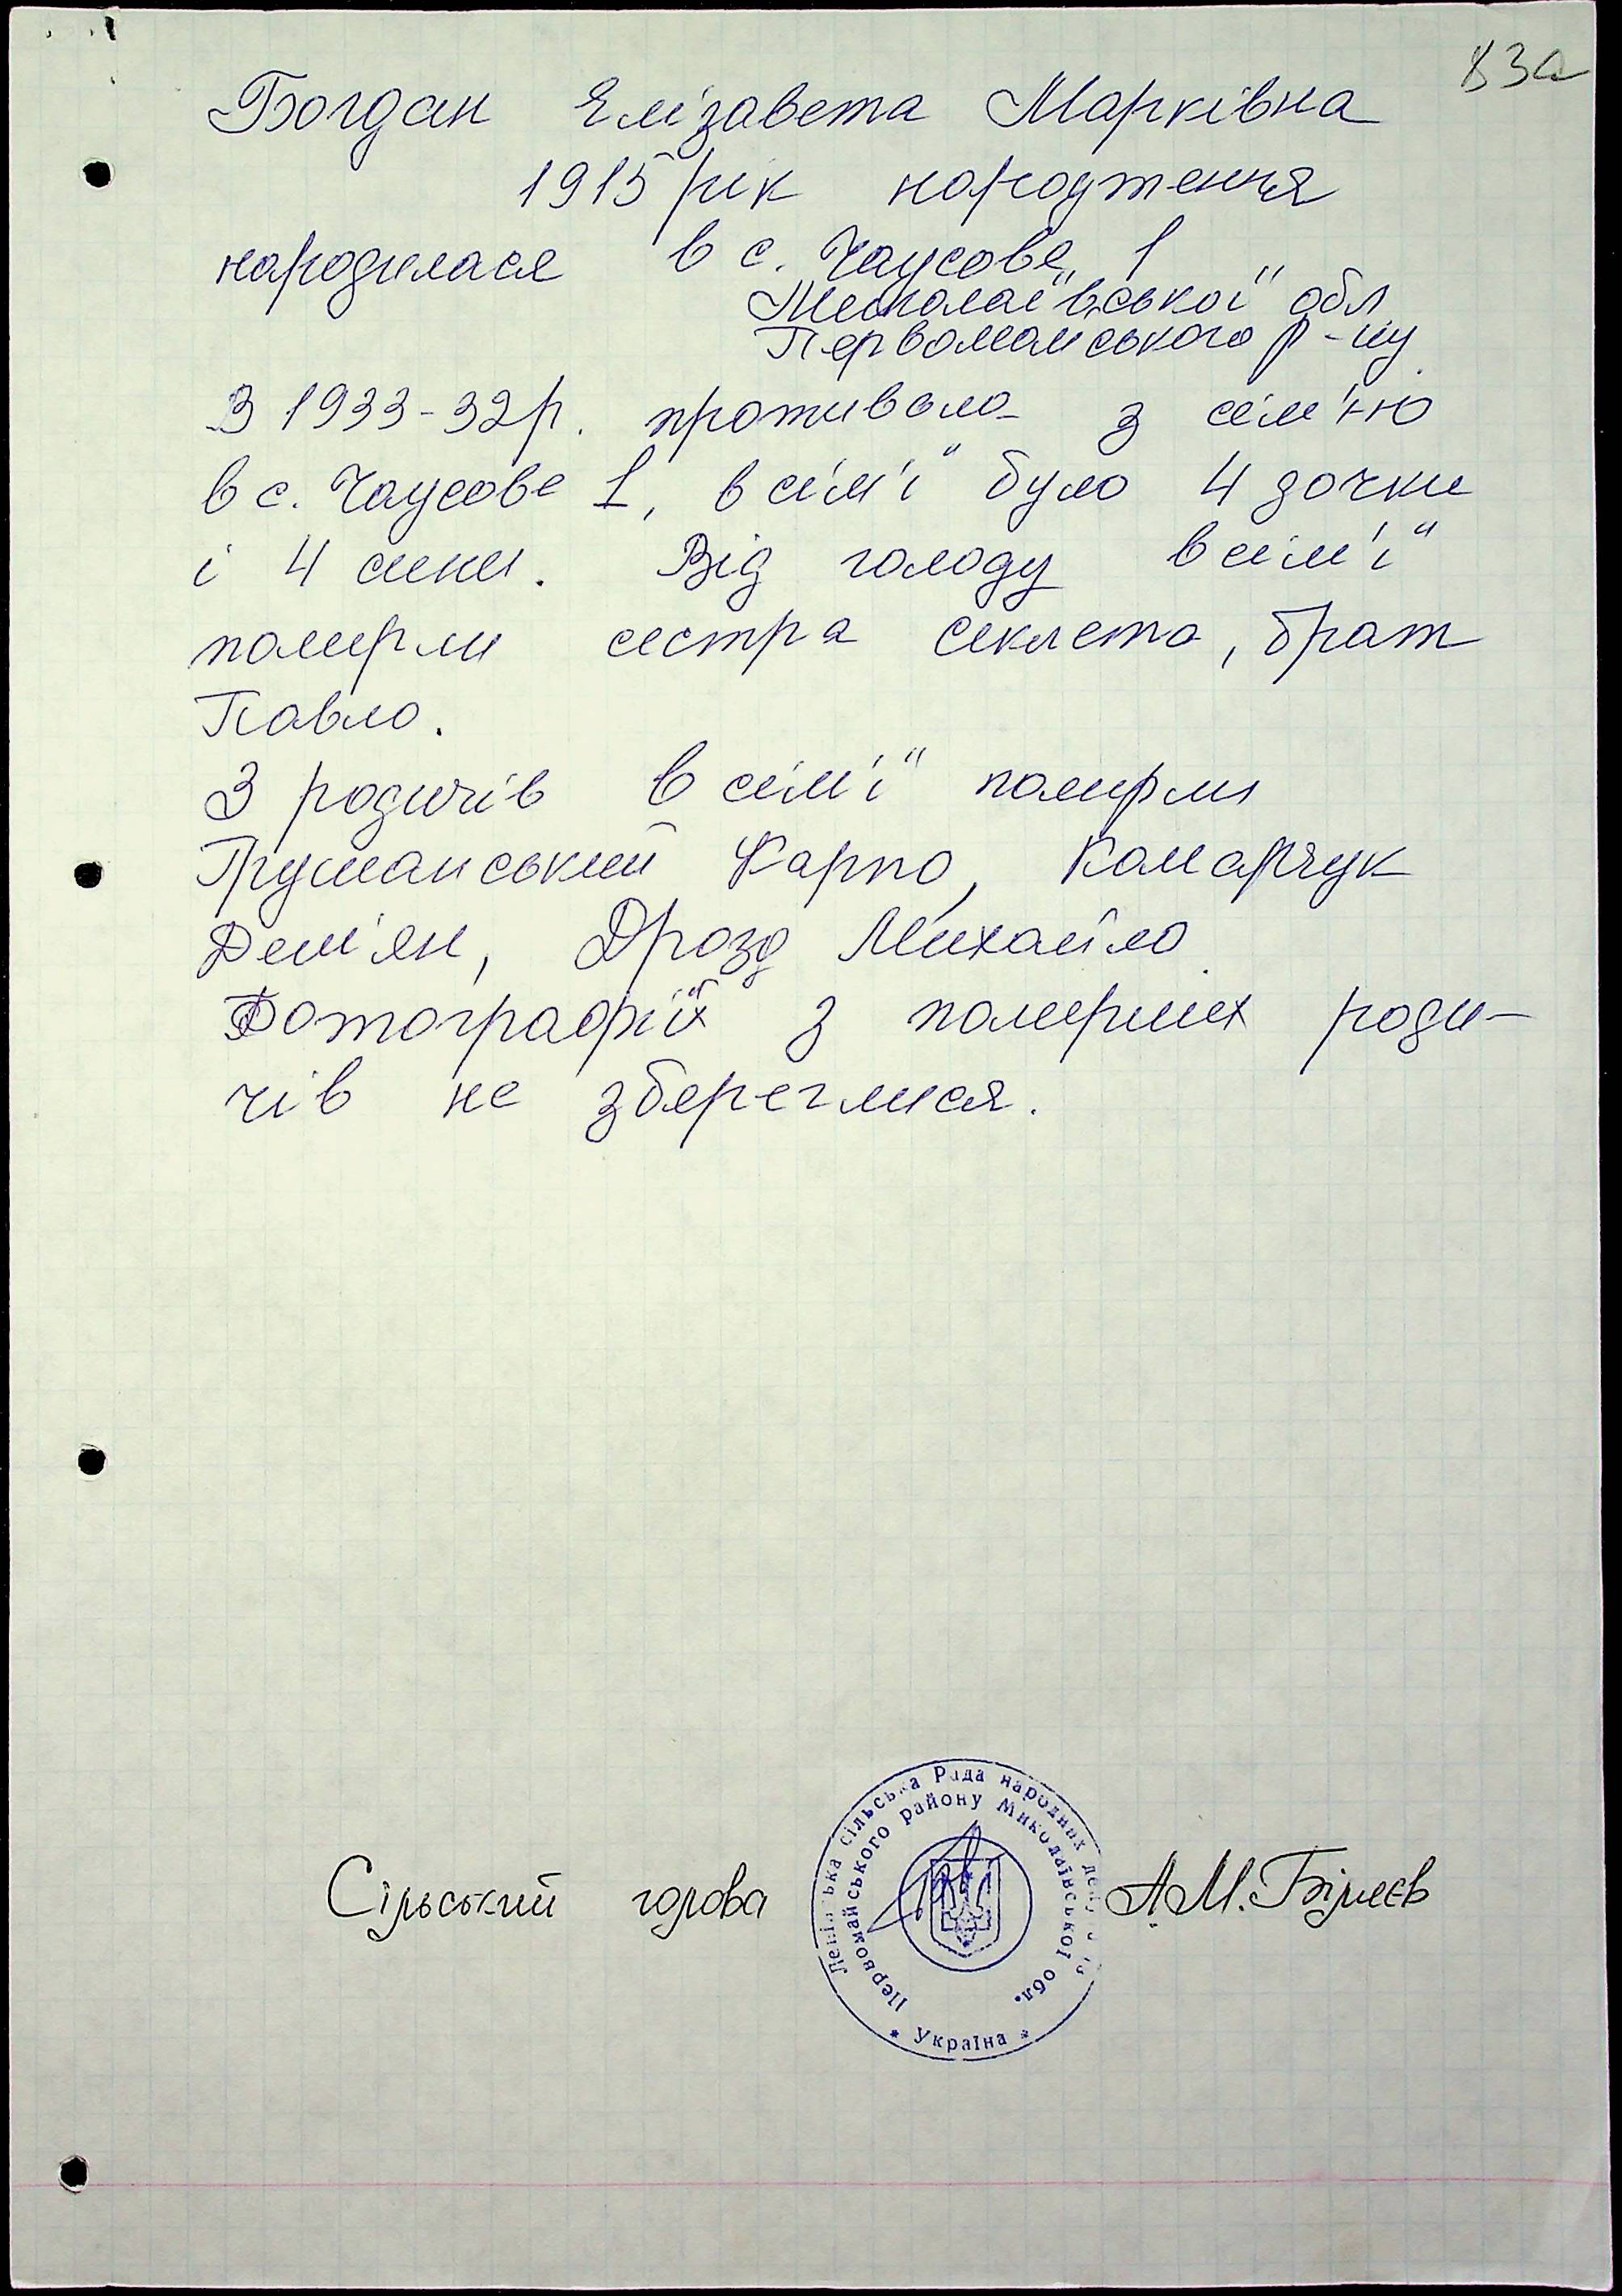 83а
Богдан Елізавета Марківна
1915 рік народження
народилася в с. Чаусове 1
Миколаївської обл
Первомайського р-ну
В 1933-32р. проживала з сім'ню
в с. Чаусове 1, в сім'ї було 4 дочки
і 4 сини. Від голоду в сім'ї
померли сестра Секлета, брат
Павло.
З родичів в сім'ї померли
Грушанський Карпо, Камарчук
Дем'ян, Дрозд Михайло
Фотографій з померших роди-
чів не збереглися.
Сільський голова
А.М. Біляєв
сільська Рада народних
Первомайського району Миколаївської обл.
* Україна *